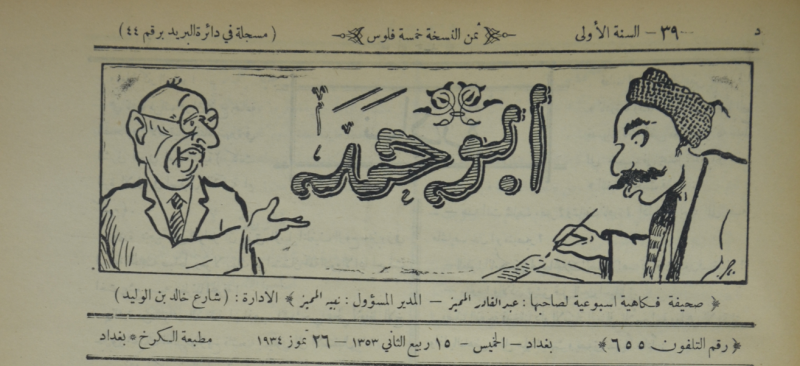 د ٣٩ — السنة الأولى ثمن النسخة خمسة فلوس (مسجلة في دائرة البريد برقم ٤٤)
أبو حمد
﴿ صحيفة فكاهية اسبوعية لصاحبها : عبدالقادر المميز — المدير المسؤول : نبيه المميز ﴾ الادارة : (شارع خالد بن الوليد)
﴿ رقم التلفون ٦٥٥ ﴾ بغداد — الخميس — ١٥ ربيع الثاني ١٣٥٣ — ٢٦ تموز ١٩٣٤ مطبعة الكرخ * بغداد